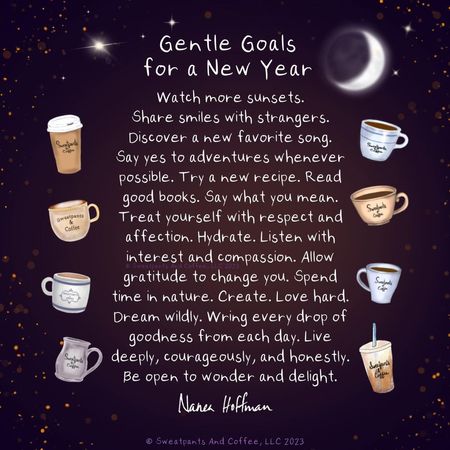 Gentle Goals
for a New Year
Watch more sunsets.
Share smiles with strangers.
Discover a new favorite song.
Say yes to adventures whenever
possible. Try a new recipe. Read
good books. Say what you mean.
Treat yourself with respect and
affection. Hydrate. Listen with
interest and compassion. Allow
gratitude to change you. Spend
time in nature. Create. Love hard.
Dream wildly. Wring every drop of
goodness from each day. Live
deeply, courageously, and honestly.
Be open to wonder and delight.
Nanea Hoffman
Sweatpants
& Coffee
Sweatpants
&
Coffee
© Sweatpants And Coffee, LLC 2023